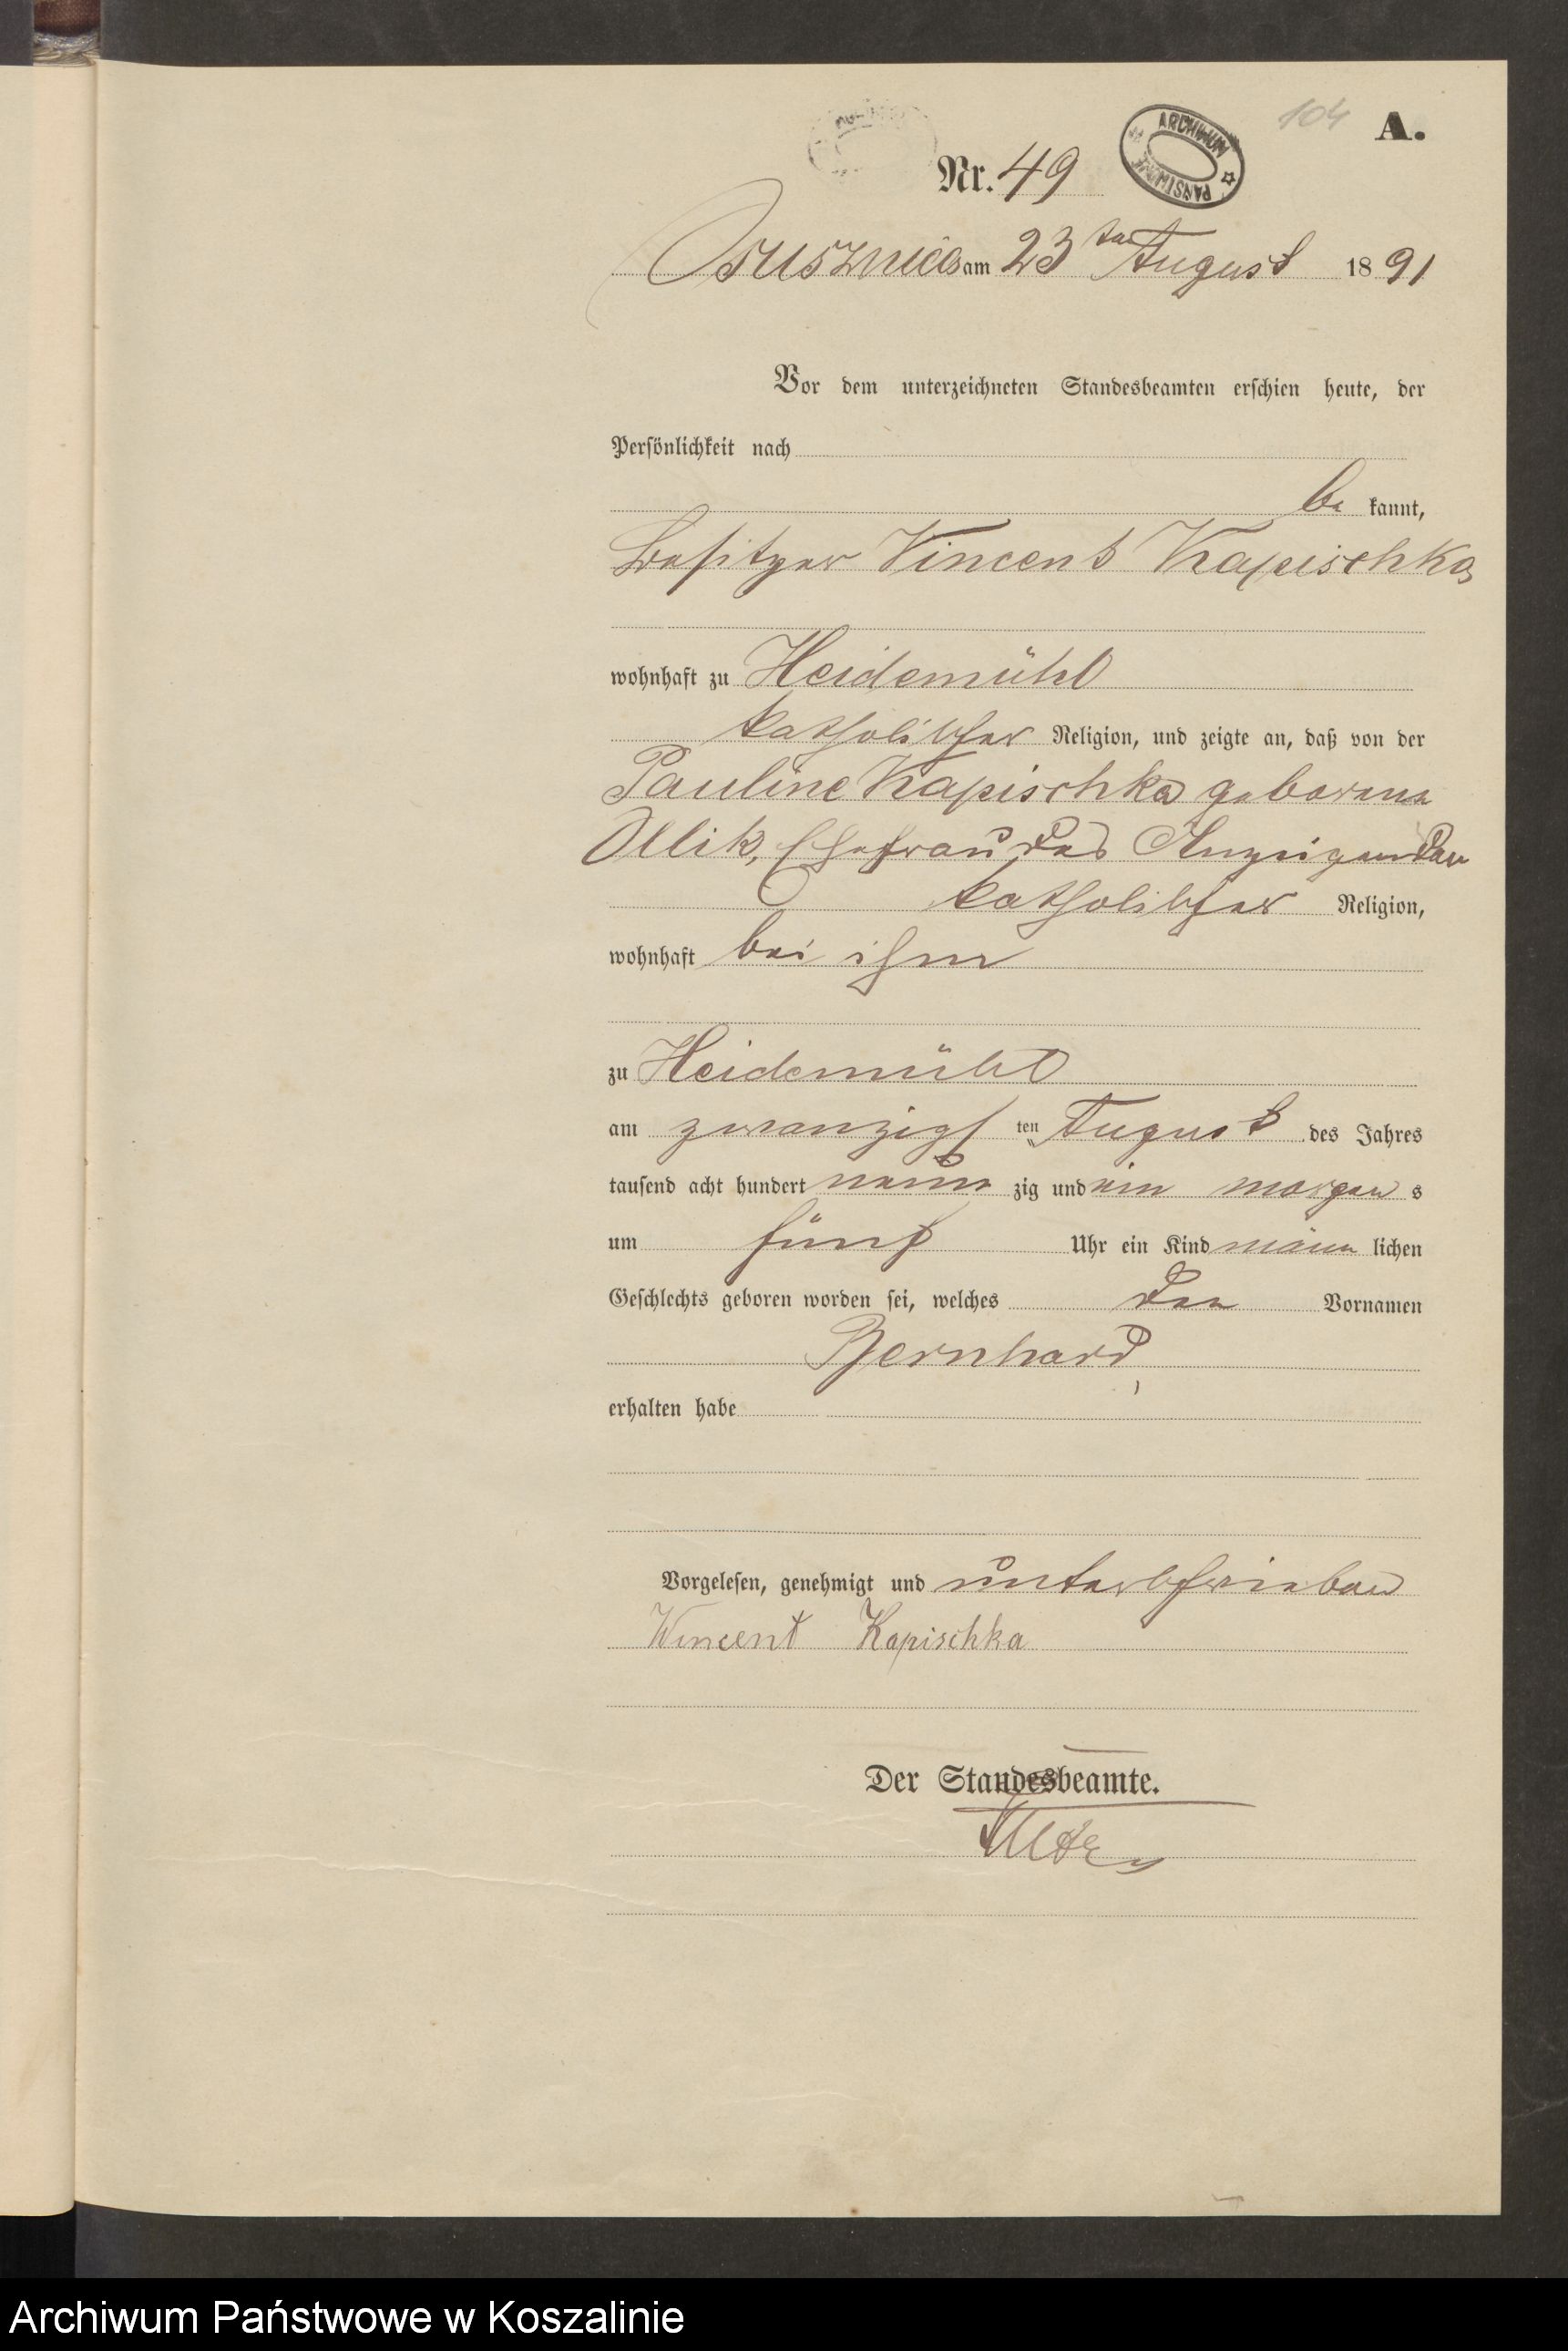 104 A.
ARCHIWUM PAŃSTWOWE
Nr. 49
Osusznica am 23ten August 1891
Vor dem unterzeichneten Standesbeamten erschien heute, der
Persönlichkeit nach
be kannt,
Besitzer Vincent Kapischka
wohnhaft zu Heidemühl
katholischer Religion, und zeigte an, daß von der
Pauline Kapischka geborene
Ollik, Ehefrau des Anzeigenden
katholischer Religion,
wohnhaft bei ihm
zu Heidemühl
am zwanzigs ten August des Jahres
tausend acht hundert neun zig und ein morgen s
um fünf Uhr ein Kind männ lichen
Geschlechts geboren worden sei, welches den Vornamen
Bernhard,
erhalten habe
Vorgelesen, genehmigt und unterschrieben
Wincent Kapischka
Der Standesbeamte.
Archiwum Państwowe w Koszalinie